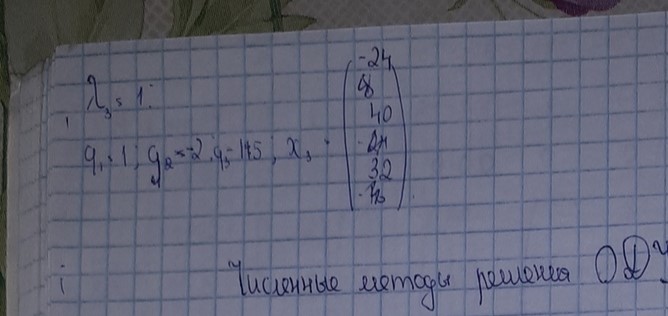 λ₃ = 1:
q₁ = 1; q₂ = -2; x₃
-24
40
32
Численные методы решения ОДУ